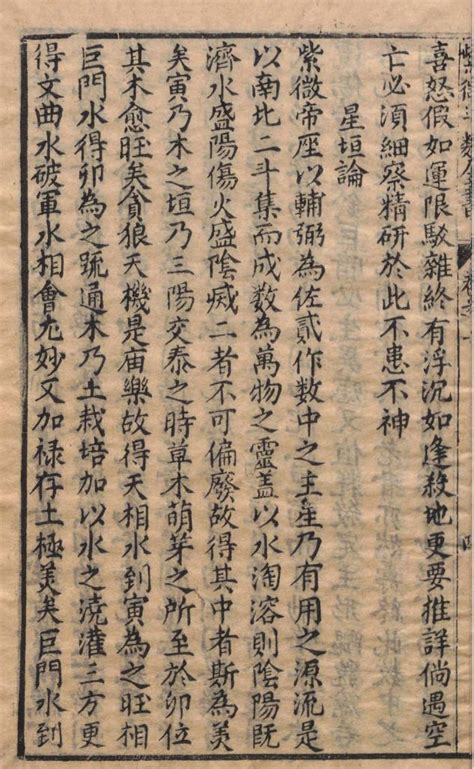 喜怒假如運限駁雜終有浮沉如逢殺地更要推詳倘遇空
亡必須細察精研於此不患不神
星垣論
紫微帝座以輔弼為佐貳作数中之主星乃有用之源流是
以南北二斗集而成数為萬物之靈盖以水淘溶則陰陽既
濟水盛陽傷火盛陰滅二者不可偏廢故得其中者斯為美
矣寅乃木之垣乃三陽交泰之時草木萌芽之所至於卯位
其木愈旺矣貪狼天機是庙樂故得天相水到寅為之旺相
巨門水得卯為之疏通木乃土栽培加以水之澆灌三方更
得文曲水破軍水相會尤妙又加禄存土極美矣巨門水到